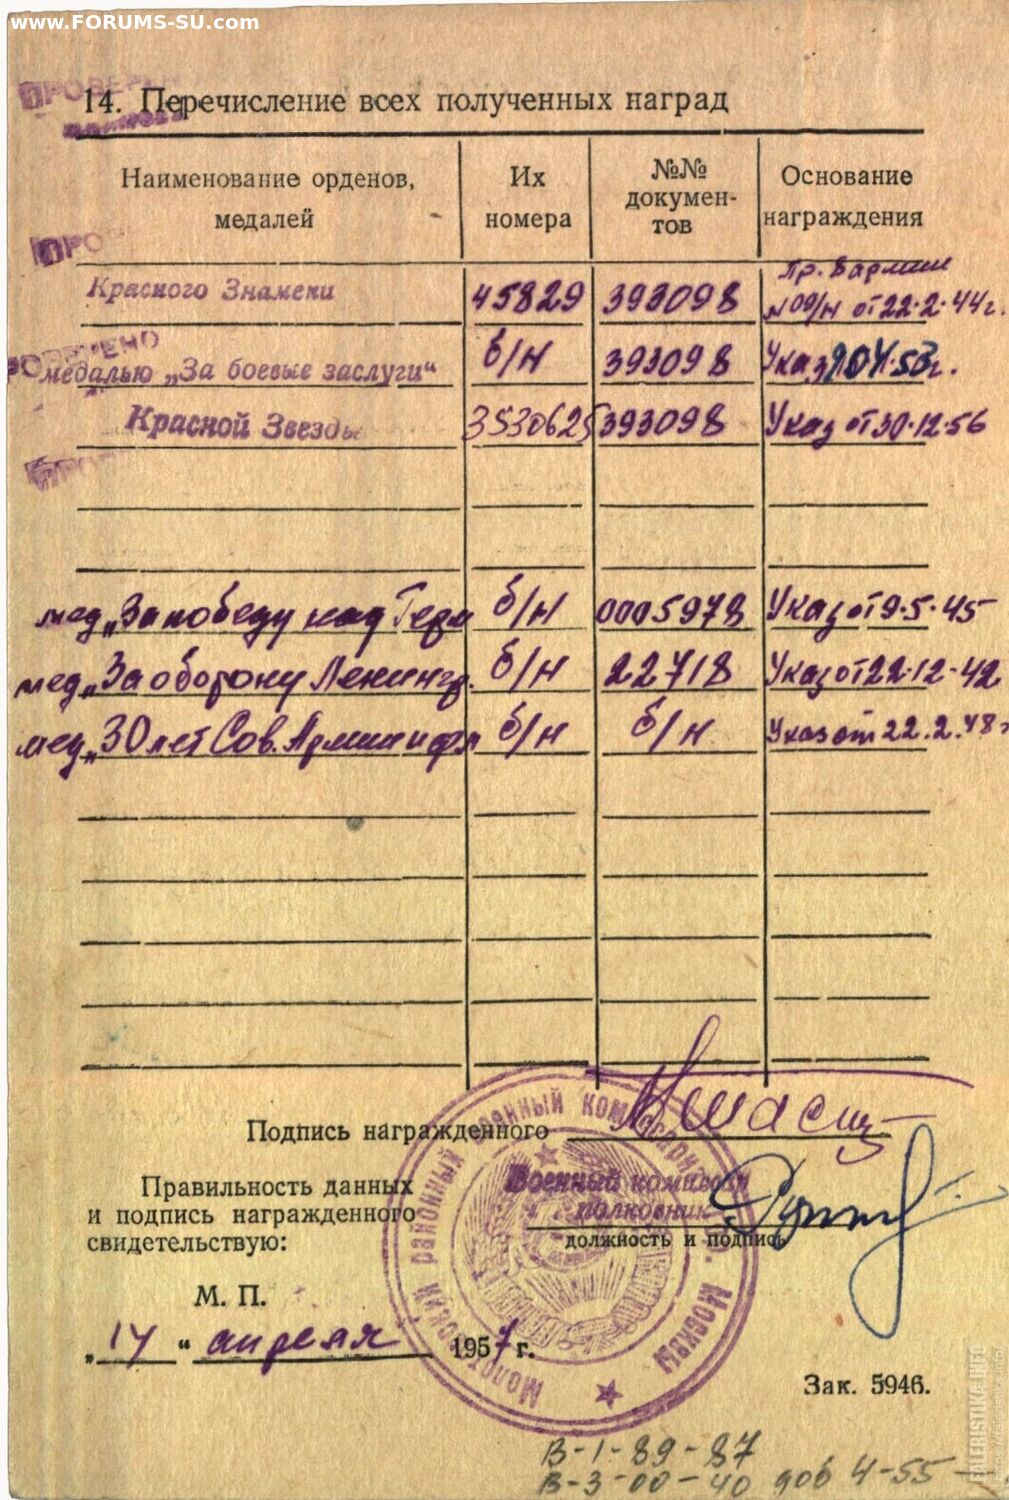 www.FORUMS-SU.com
ПРОВЕРЕНО
14. Перечисление всех полученных наград
Наименование орденов, медалей
Их номера
№№ докумен-тов
Основание награждения
Красного Знамени 45829 393098 Пр. Вармии №09/н от 22.2.44г.
ПРОВЕРЕНО
медалью „За боевые заслуги“ б/н 393098 Указ
Красной Звезды 3530625 393098 Указ от 30.12.56
мед „За победу над Герм б/н 0005978 Указ от 9.5.45
мед „За оборону Ленингр. б/н 22718 Указ от 22.12.42
мед „30 лет Сов. Армии и фл б/н б/н Указ от 22.2.48г
Подпись награжденного
Правильность данных
и подпись награжденного
свидетельствую:
Военный комиссар
полковник
должность и подпись
М. П.
„14“ апреля 1957 г.
Молотовский районный военный комиссариат г. Москвы
Зак. 5946.
В-1-89-87
В-3-00-40 доб 4-55
FALERISTIKA.INFO